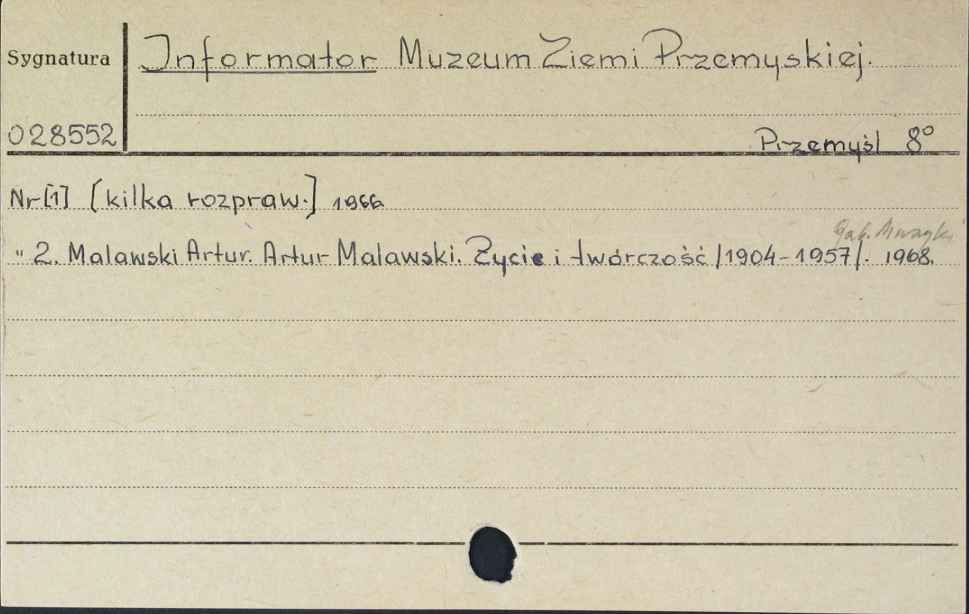 Sygnatura
Informator Muzeum Ziemi Przemyskiej.
028552
Przemyśl 8°
Nr [1] [kilka rozpraw.] 1966
Gab. Muzyki
" 2. Malawski Artur. Artur Malawski. Życie i twórczość /1904-1957/. 1968.